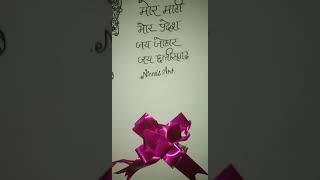 मोर माटी
मोर प्रदेश
जय जोहार
जय छत्तीसगढ़